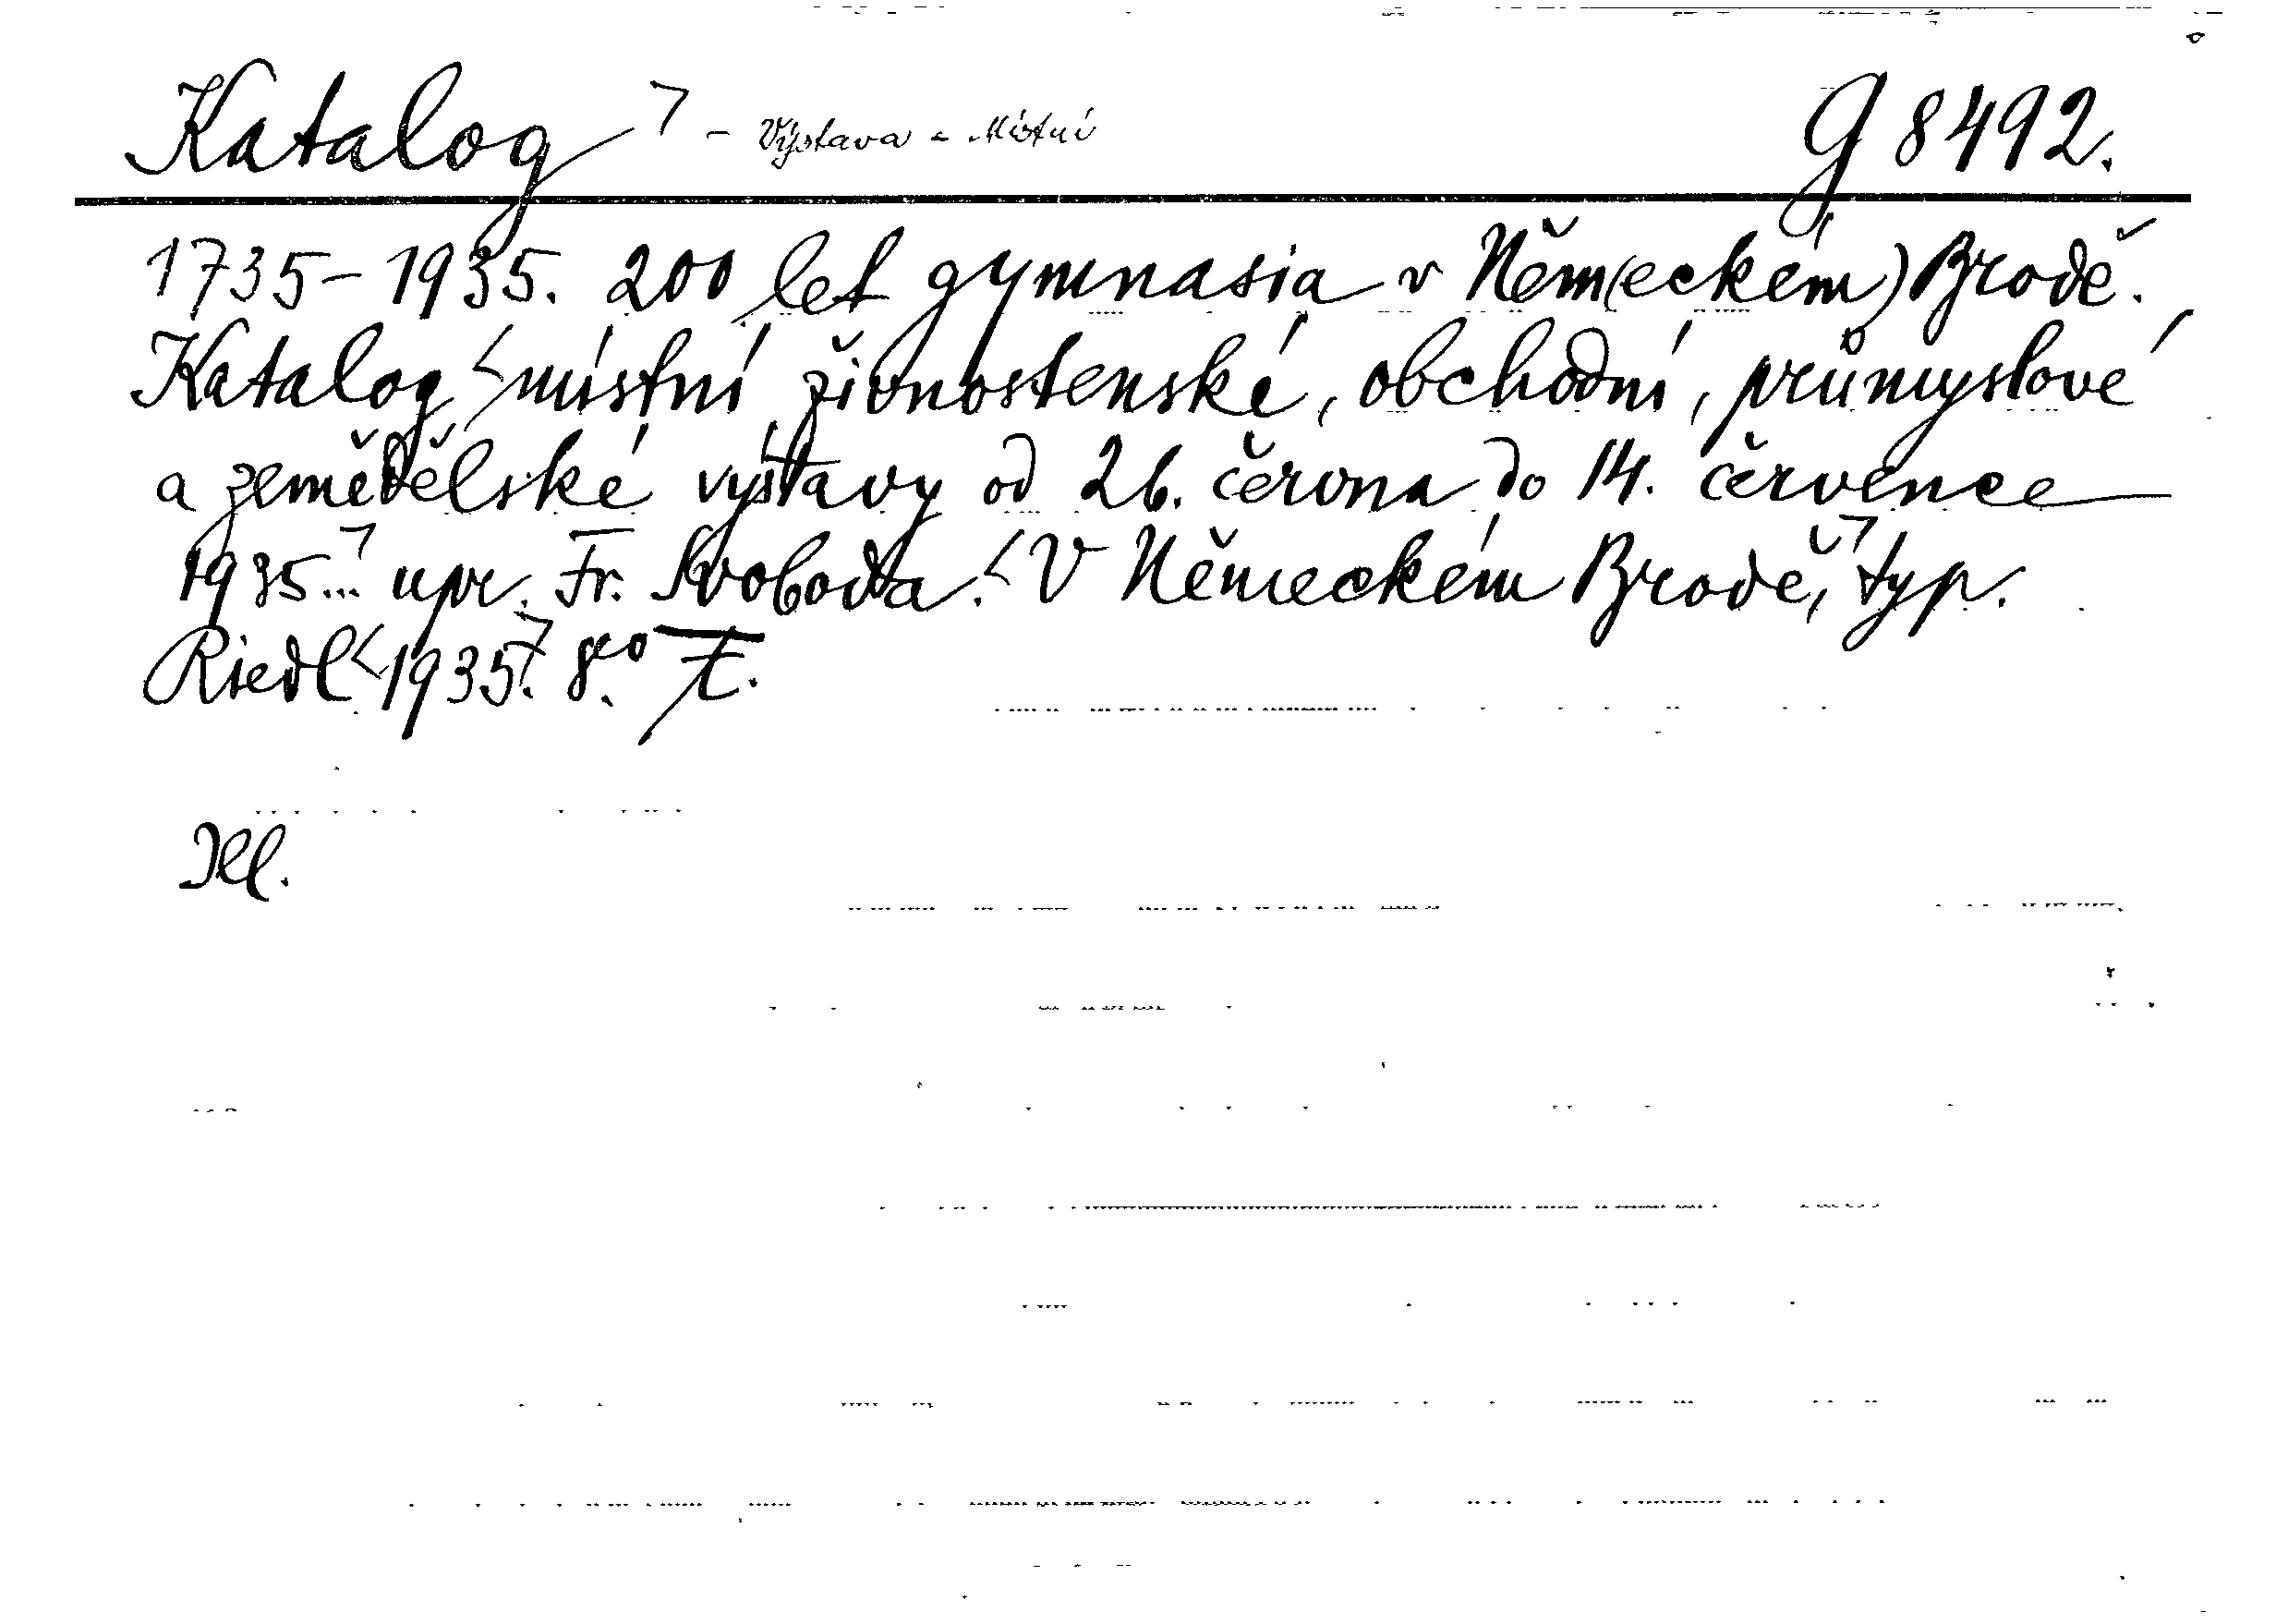 Katalog - Výstava - Místní G 8492.
1735-1935. 200 let gymnasia v Něm(eckém) Brodě.
Katalog místní živnostenské, obchodní, průmyslové
a zemědělské výstavy od 26. června do 14. července
1935... upr. Fr. Svoboda. V Německém Brodě, typ.
Riedl 1935. 8.vo
Ill.